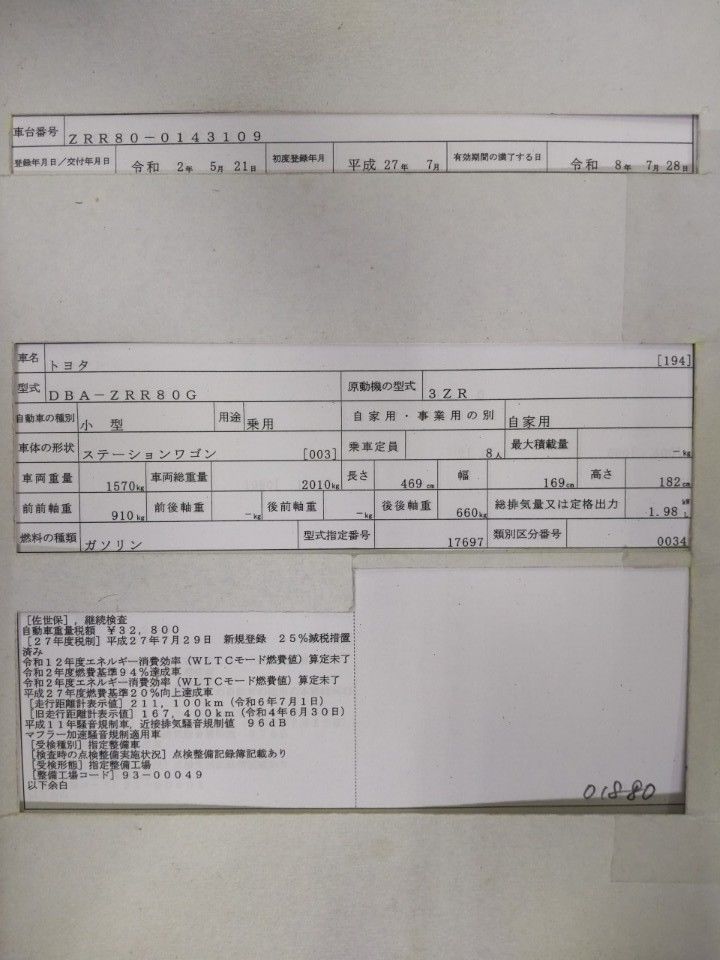 車台番号 ZRR80-0143109
登録年月日/交付年月日 令和 2年 5月 21日 初度登録年月 平成 27年 7月 有効期間の満了する日 令和 8年 7月 28日
車名 トヨタ [194]
型式 DBA-ZRR80G 原動機の型式 3ZR
自動車の種別 小 型 用途 乗用 自家用・事業用の別 自家用
車体の形状 ステーションワゴン [003] 乗車定員 8人 最大積載量 -kg
車両重量 1570kg 車両総重量 2010kg 長さ 469cm 幅 169cm 高さ 182cm
前前軸重 910kg 前後軸重 -kg 後前軸重 -kg 後後軸重 660kg 総排気量又は定格出力 kW 1.98 L
燃料の種類 ガソリン 型式指定番号 17697 類別区分番号 0034
[佐世保],継続検査
自動車重量税額 ¥32,800
[27年度税制]平成27年7月29日 新規登録 25%減税措置
済み
令和12年度エネルギー消費効率(WLTCモード燃費値)算定未了
令和2年度燃費基準94%達成車
令和2年度エネルギー消費効率(WLTCモード燃費値)算定未了
平成27年度燃費基準20%向上達成車
[走行距離計表示値]211,100km(令和6年7月1日)
[旧走行距離計表示値]167,400km(令和4年6月30日)
平成11年騒音規制車,近接排気騒音規制値 96dB
マフラー加速騒音規制適用車
[受検種別]指定整備車
[検査時の点検整備実施状況]点検整備記録簿記載あり
[受検形態]指定整備工場
[整備工場コード]93-00049
以下余白
01880